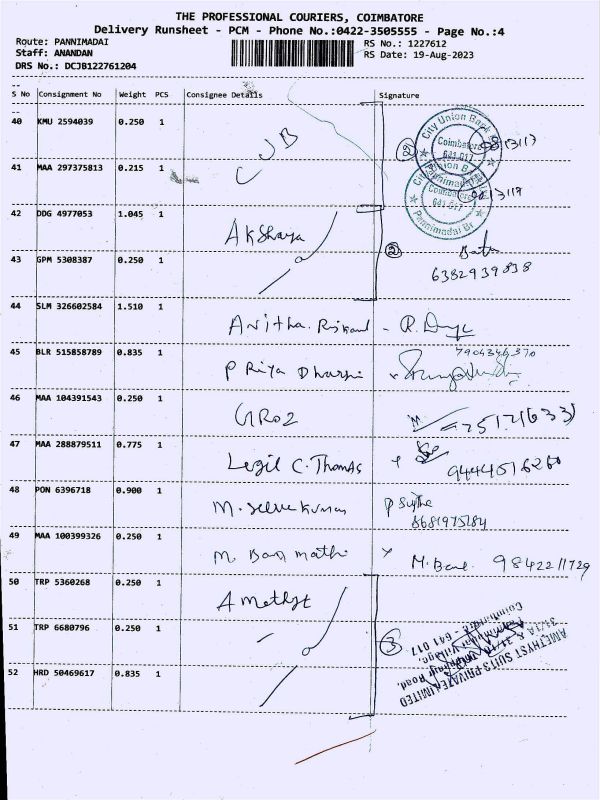 THE PROFESSIONAL COURIERS, COIMBATORE
Delivery Runsheet - PCM - Phone No.:0422-3505555 - Page No.:4
Route: PANNIMADAI
RS No.: 1227612
Staff: ANANDAN
RS Date: 19-Aug-2023
DRS No.: DCJB122761204
S No Consignment No Weight PCS Consignee Details Signature
40 KMU 2594039 0.250 1 CUB
City Union Bank
Coimbatore
641 017
41 MAA 297375813 0.215 1
Coimbatore
641 017
Pannimadai Br
42 DDG 4977053 1.045 1 Akshaya
43 GPM 5308387 0.250 1 2
6382939838
44 SLM 326602584 1.510 1 Anitha
45 BLR 515858789 0.835 1 Priya Dharshi
7904346370
46 MAA 104391543 0.250 1
47 MAA 288879511 0.775 1 Legil C. Thomas 9444516260
48 PON 6396718 0.900 1 M. Selvakumar
8681975184
49 MAA 100399326 0.250 1 M. Banmathi M. Banu 9842211729
50 TRP 5360268 0.250 1 Amethyst
51 TRP 6680796 0.250 1 3
52 HRD 50469617 0.835 1
AMETHYST SUITS PRIVATE LIMITED
Coimbatore - 641 017